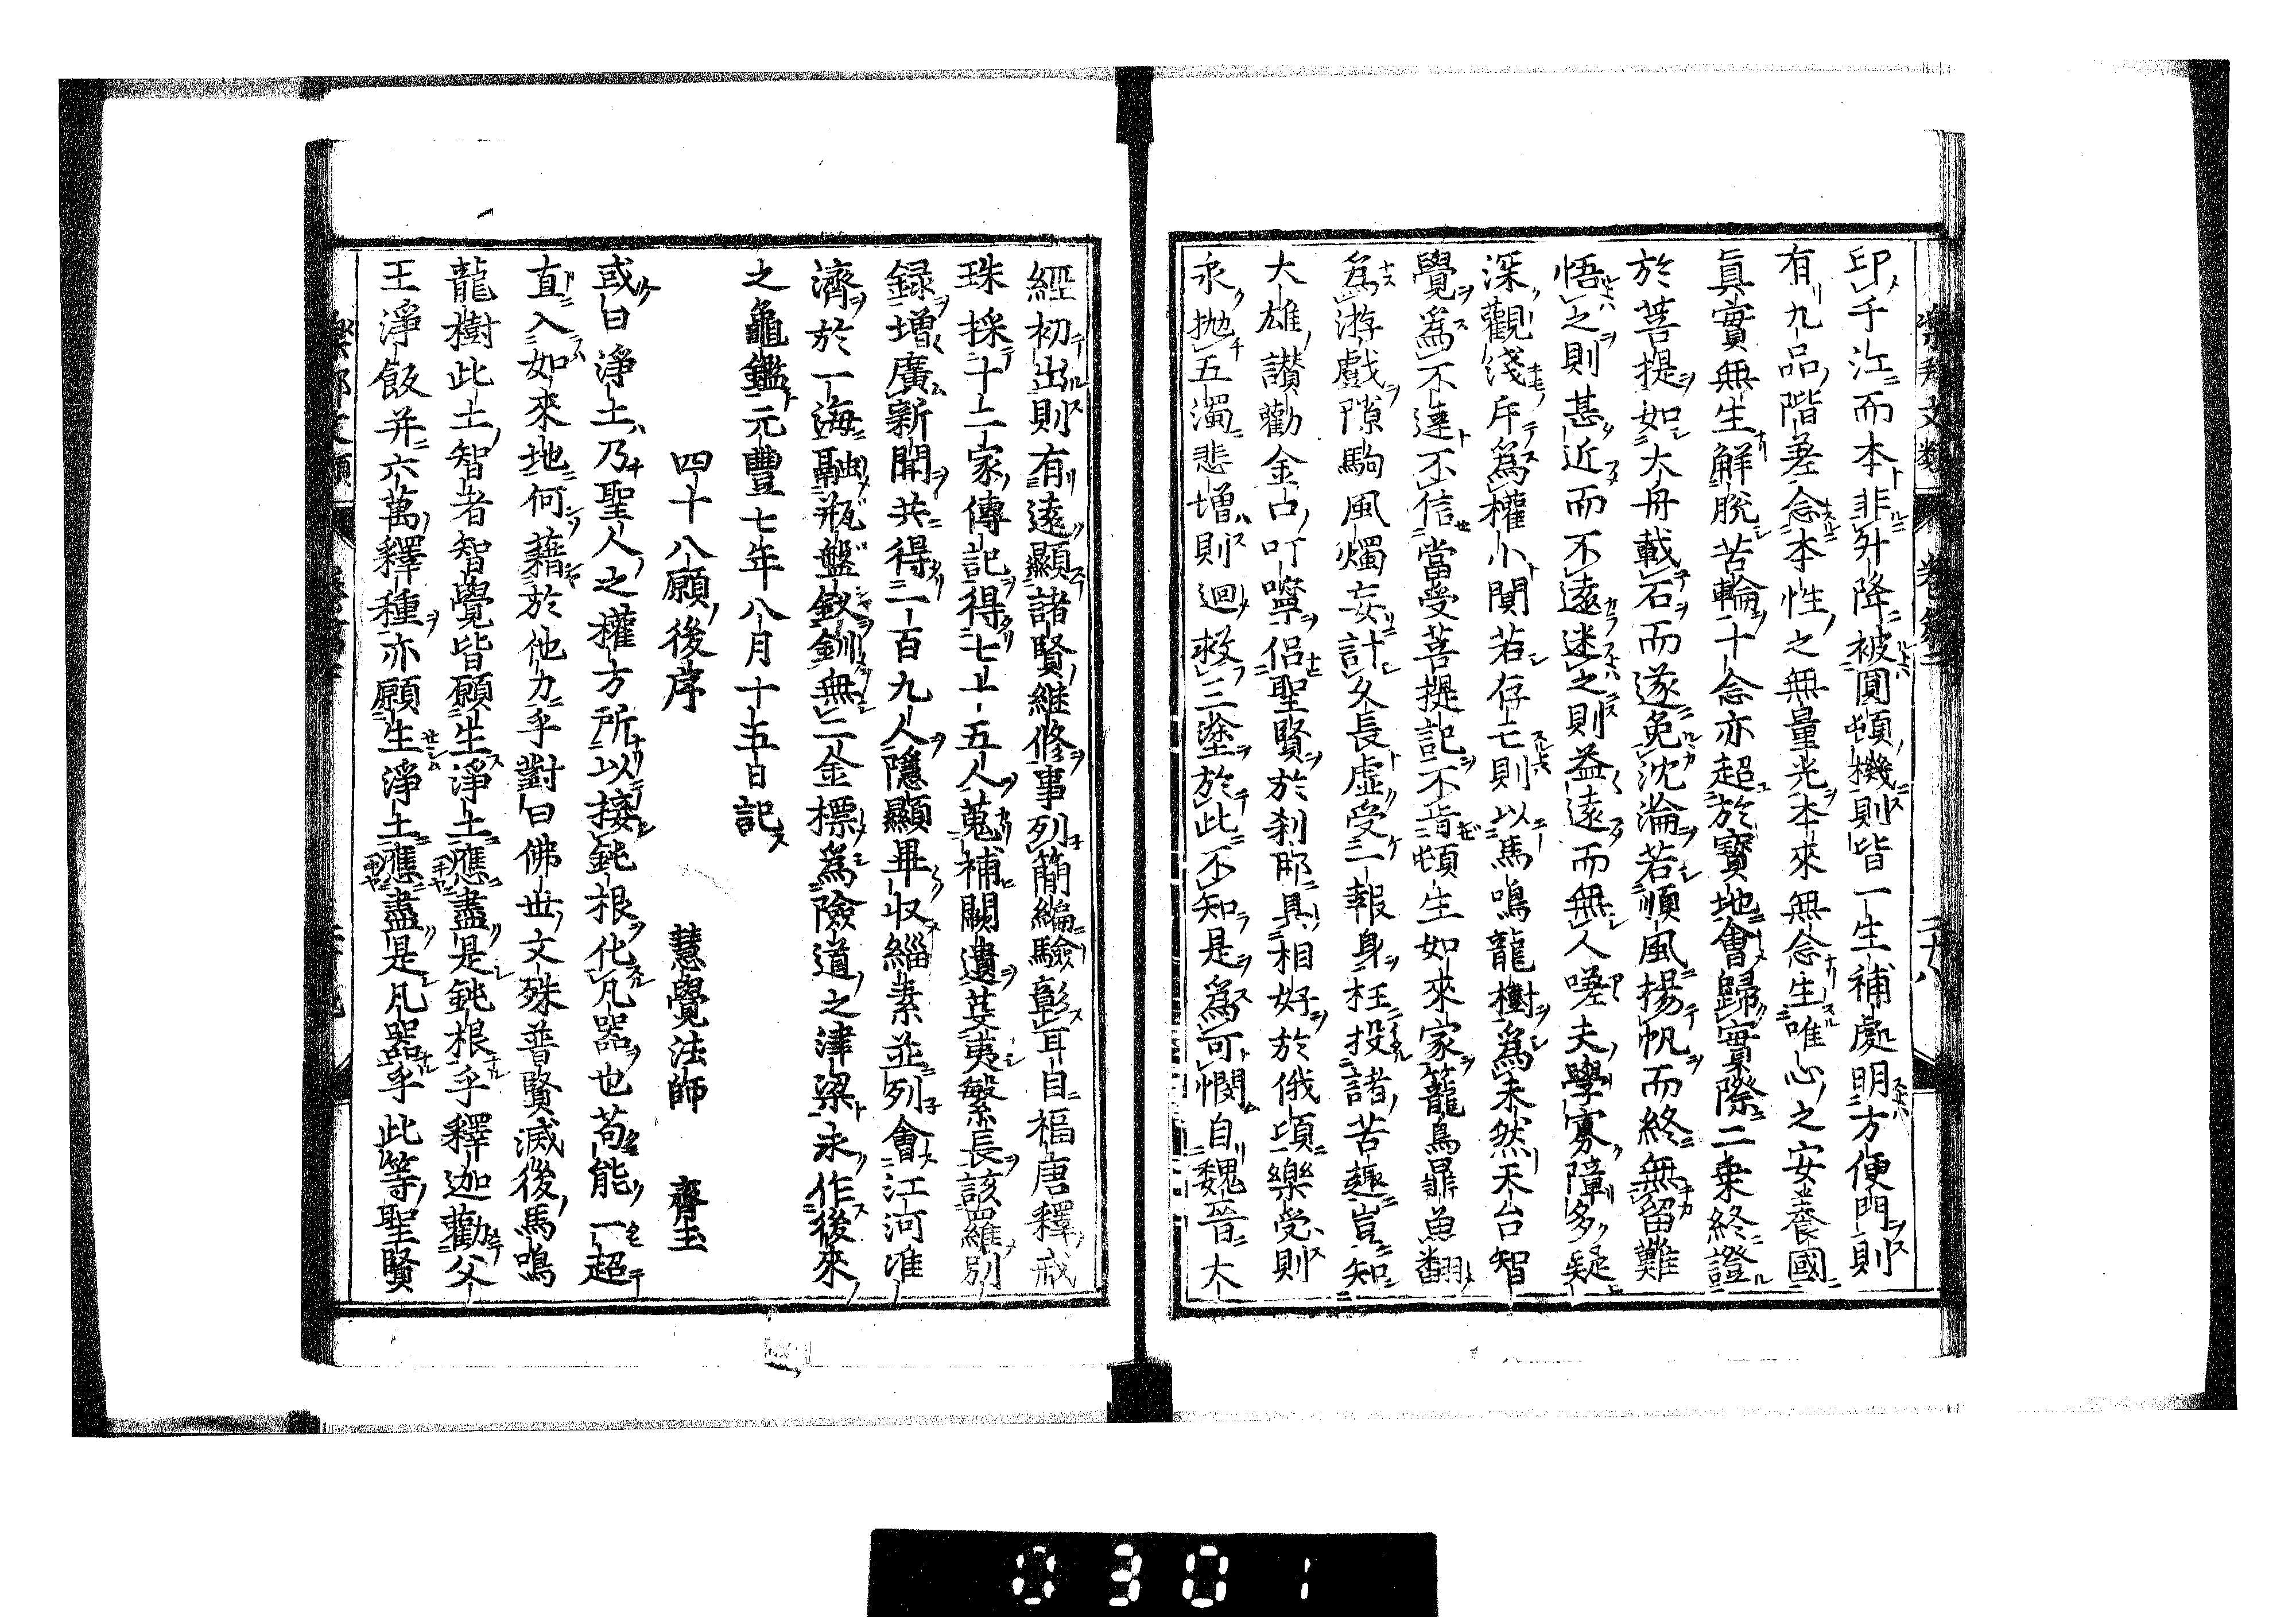 樂邦文類 卷第二 二十八
印千江而本非昇降被圓頓機則皆一生補處明方便門則
有九品階差念本性之無量光本來無念生唯心之安養國
眞實無生解脫苦輪十念亦超於寳地會歸實際二乗終證
於菩提如大舟載石而遂免沈淪若順風揚帆而終無留難
悟之則甚近而不遠迷之則益遠而無人嗟夫學寡障多疑
深觀淺斥爲權小閴若存亡則以馬鳴龍樹爲未然天台智
覺爲不達不信當受菩提記不肯頓生如來家籠鳥鼎魚翻
爲游戲隙駒風燭妄計久長虚受一報身枉投諸苦趣豈知
大雄讃勸金口叮嚀侣聖賢於刹那具相好於俄頃樂受則
永抛五濁悲增則迴救三塗於此不知是爲可憫自魏晉大
經初出則有遠顯諸賢維修事列簡編驗彰耳目樞唐釋戒
珠採十二家傳記得七十五人蒐補闕遺芟夷繁長該羅別
録增廣新聞共得二百九人隱顯畢収緇素並列會江河淮
濟於一海融瓶盤釵釧無二金標爲險道之津梁永作後來
之龜鑑元豐七年八月十五日記
四十八願後序
慧覺法師 齊玉
或曰淨土乃聖人之權方所以接鈍根化凡器也苟能一超
直入如來地何藉於他力乎對曰佛世文殊普賢滅後馬鳴
龍樹此土智者智覺皆願生淨土應盡是鈍根乎釋迦勸父
王淨飯并六萬釋種亦願生淨土應盡是凡器乎此等聖賢
樂邦文類
0301